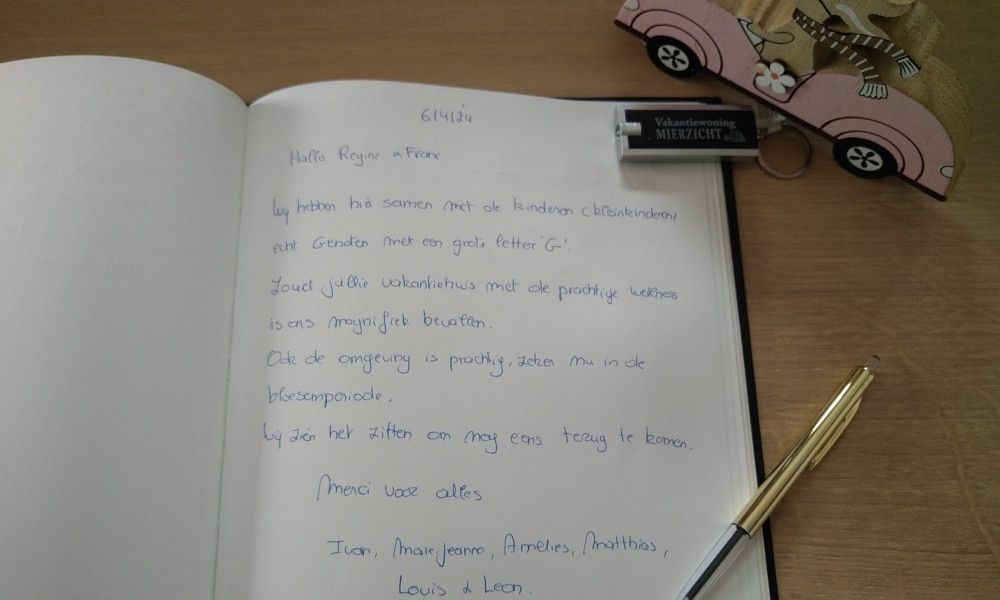 6/4/24
Hallo Regine & Frans
Wij hebben hier samen met de kinderen (kleinkinderen)
echt Genoten met een grote letter 'G'.
Zowel jullie vakantiehuis met de prachtige wellness
is ons magnifiek bevallen.
Ook de omgeving is prachtig, zeker nu in de
bloesemperiode.
Wij zien het zitten om nog eens terug te komen.
Merci voor alles
Ivan, Marie-Jeanne, Amelies, Matthias,
Louis & Leon.
Vakantiewoning
MIERZICHT